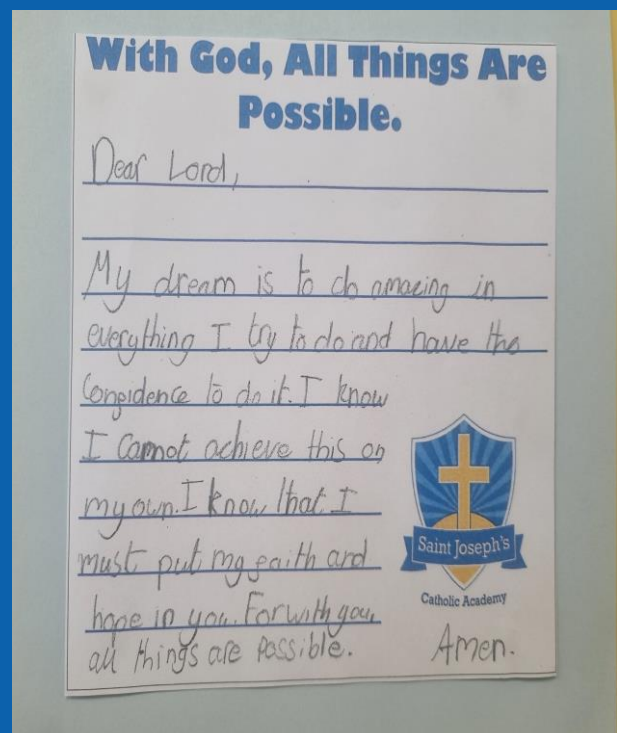 With God, All Things Are
Possible.
Dear Lord,
My dream is to do amazing in
everything I try to do and have the
confidence to do it. I know
I cannot achieve this on
my own. I know that I
must put my faith and
hope in you. For with you,
all things are possible.
Saint Joseph's
Catholic Academy
Amen.